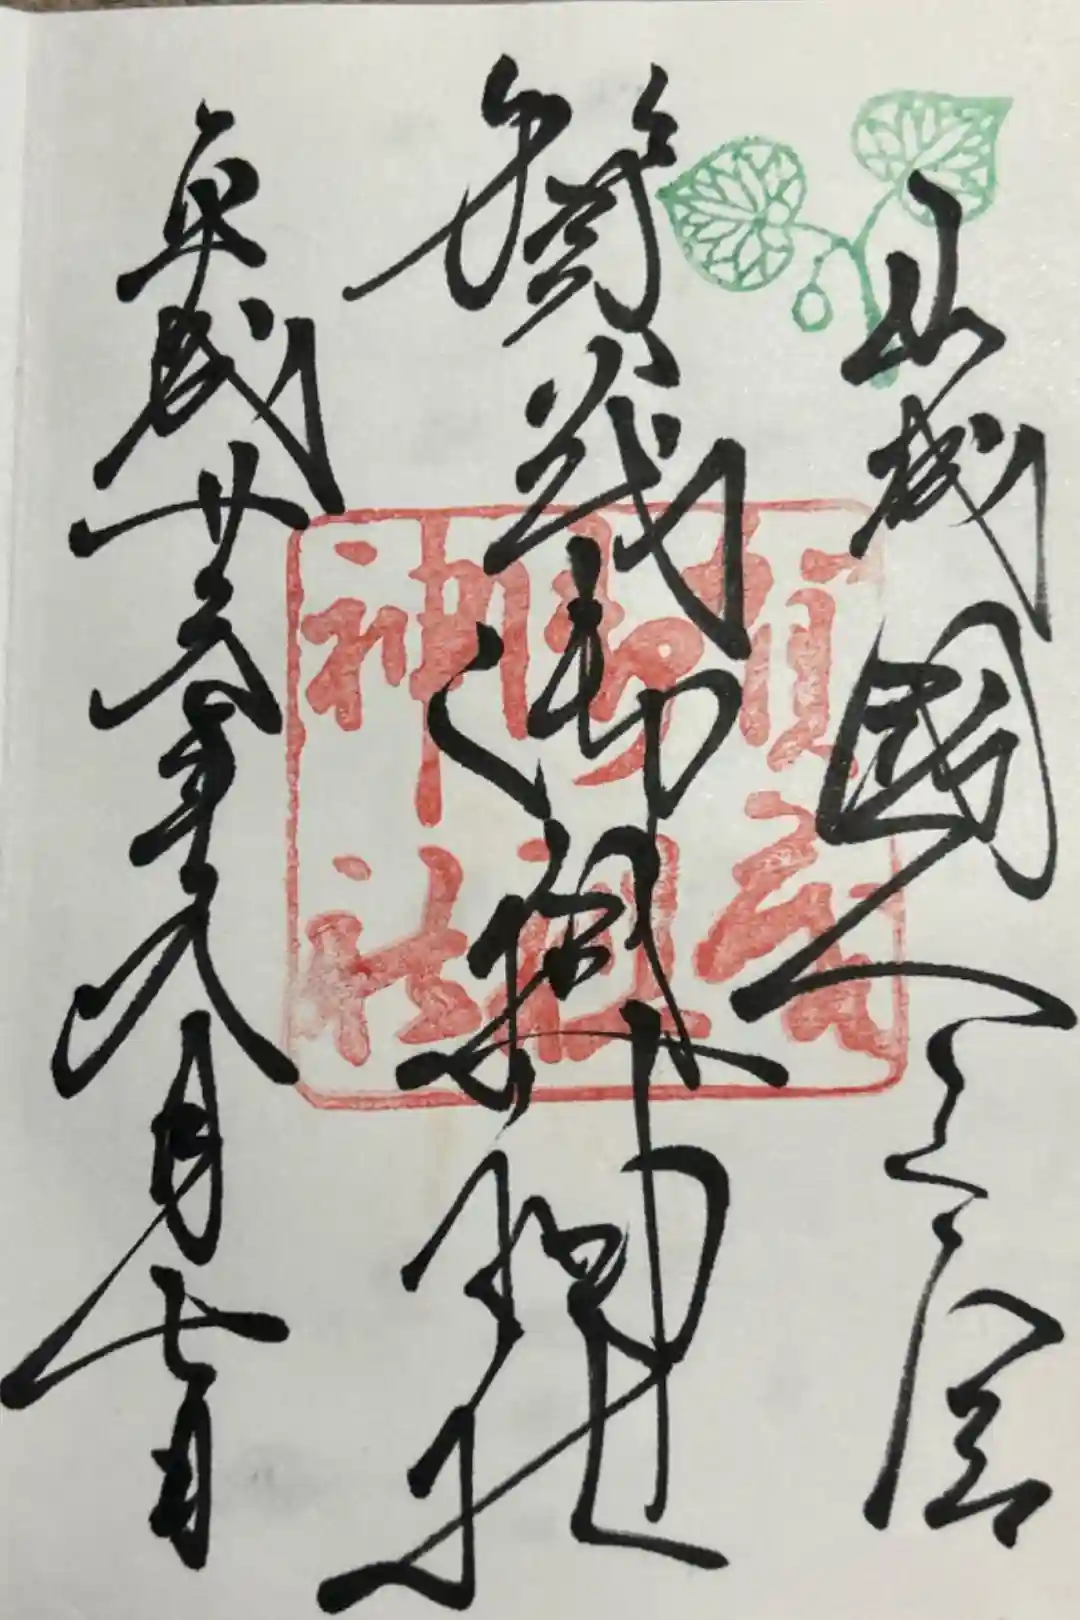 山城國一之宮
賀茂御祖神社
平成廿六年 月七日
賀茂
御祖
神社